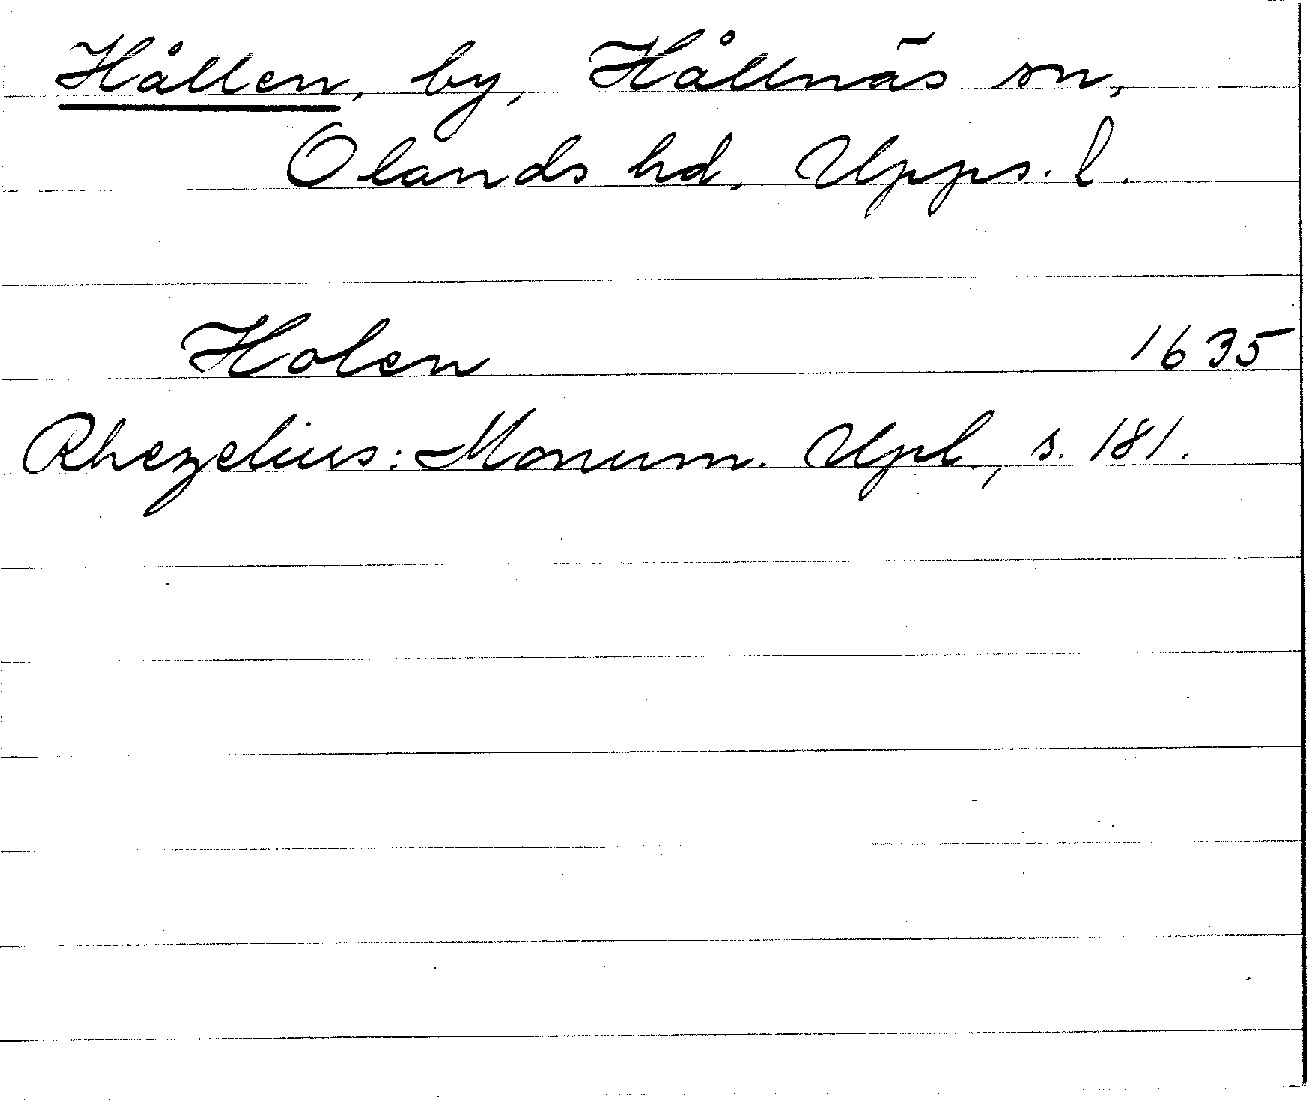 Hållen, by, Hållnäs sn,
Olands hd, Upps. l.
Holen 1635
Rhezelius: Monum. Upl., s. 181.